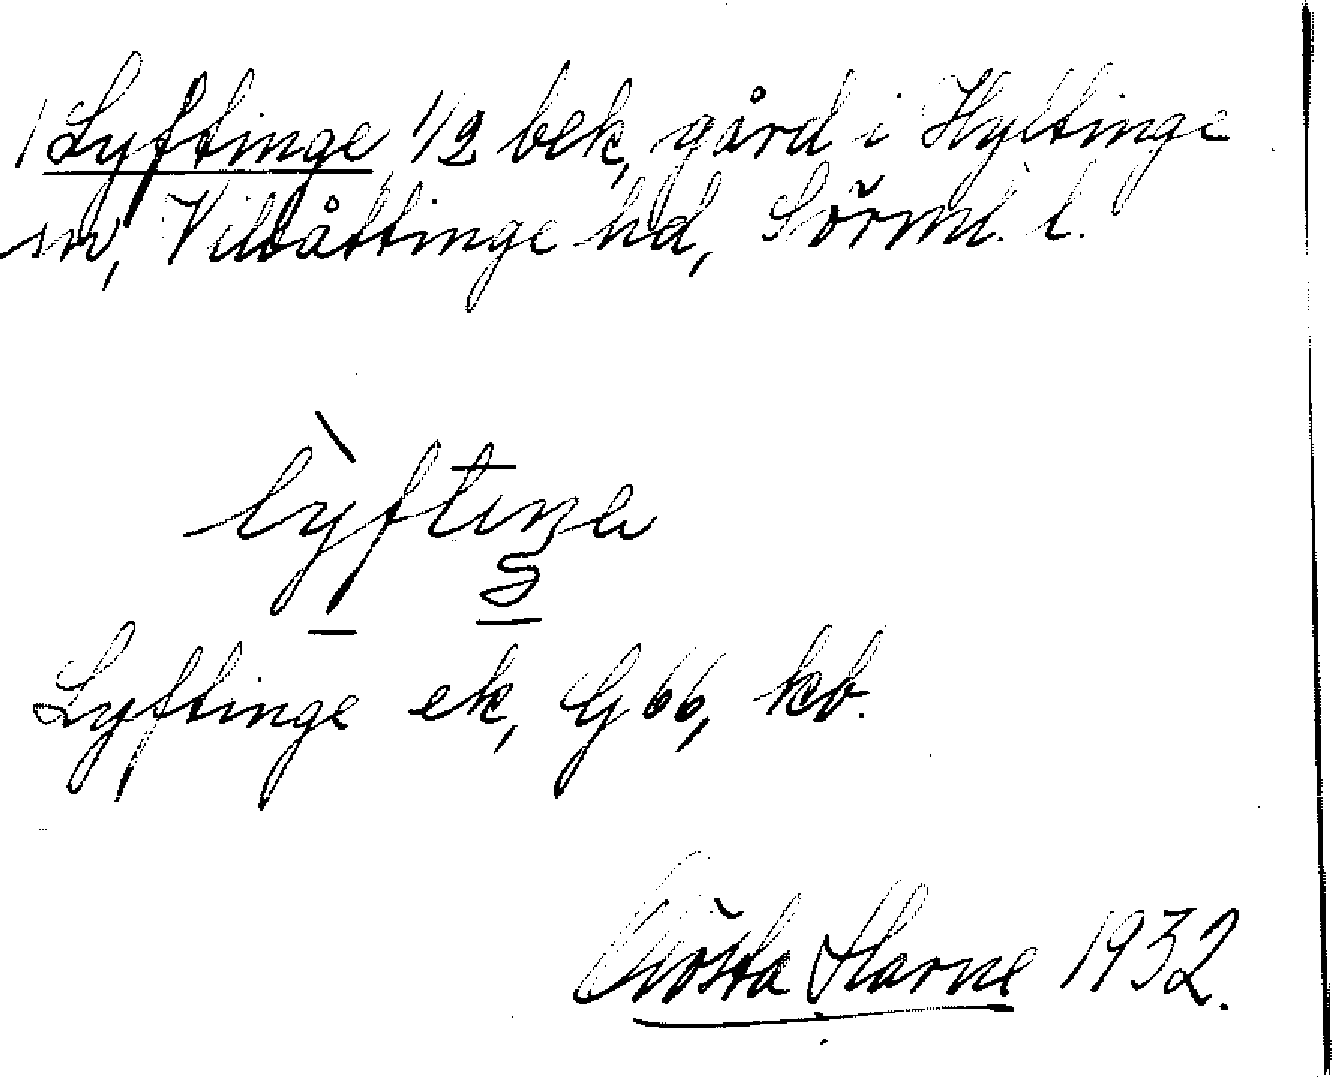 Lyftinge 1/2 bek, gård i Hyltinge
sn, Villåttinge hd, Sörml. l.
lỳftıŋe
Lyftinge ek, G 66, kb.
Gösta Harne 1932.